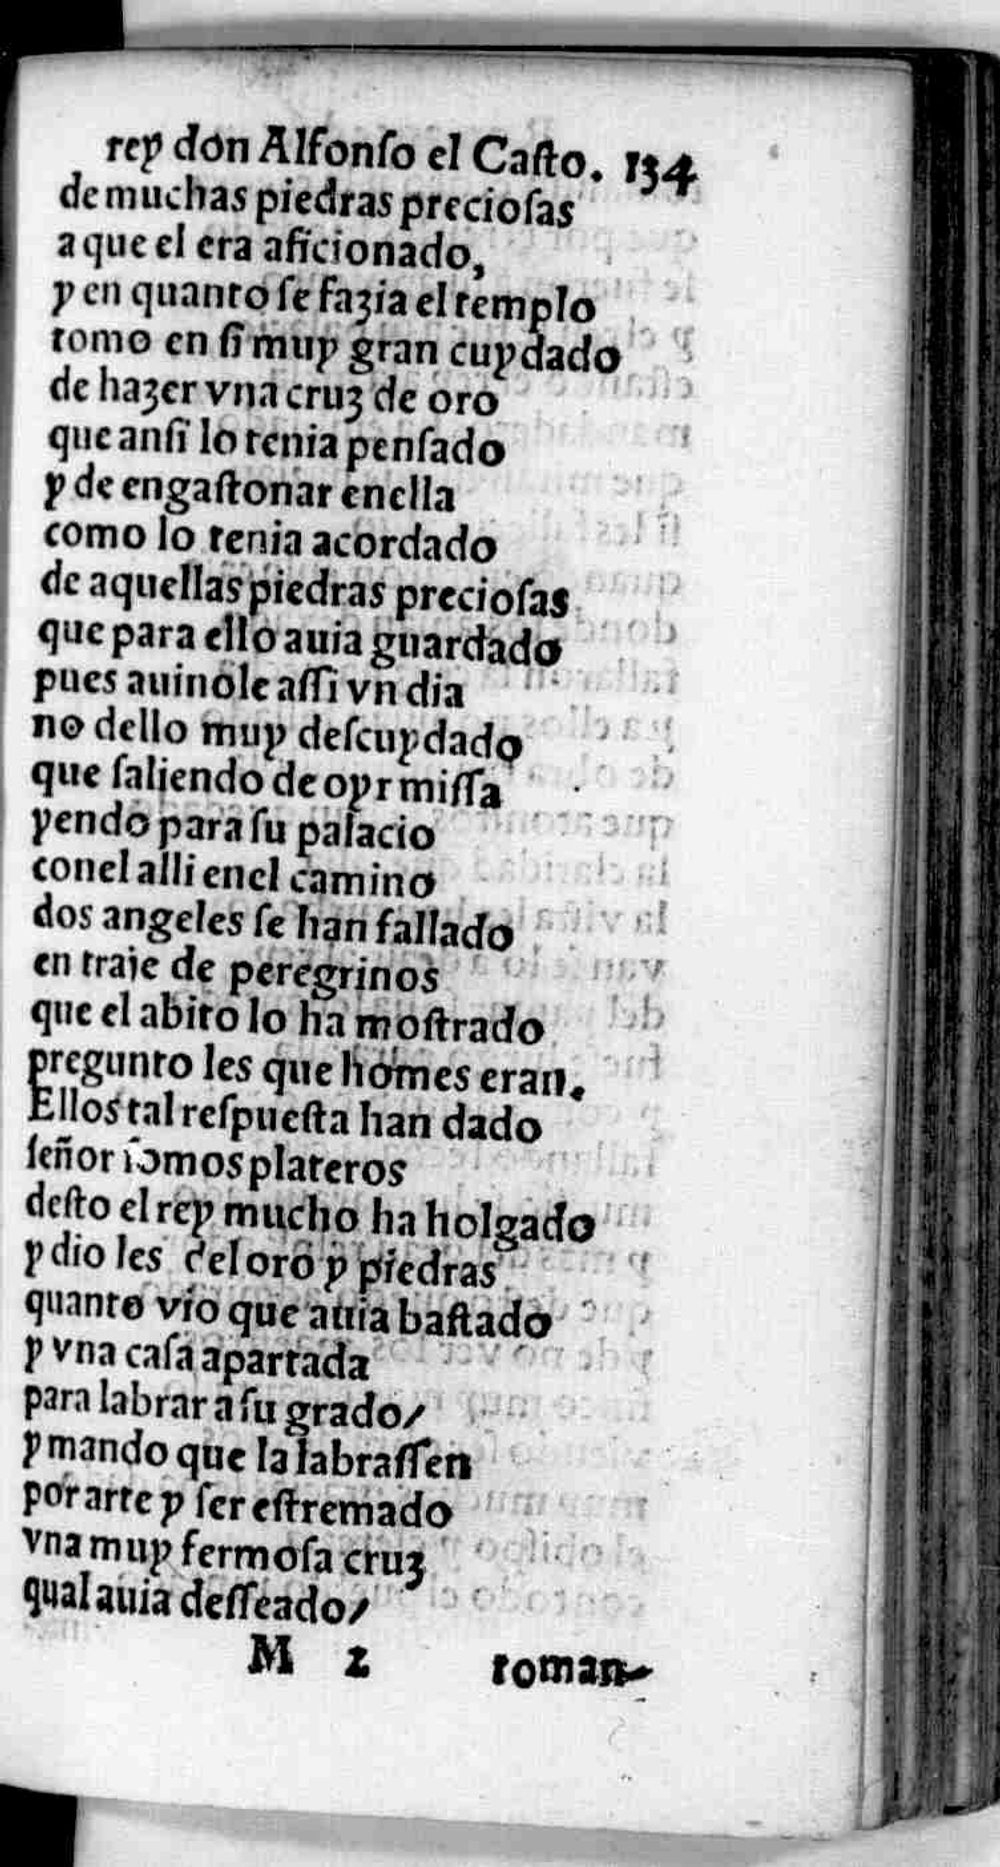 rey don Alfonſo el Caſto. 134
de muchas piedras precioſas
a que el era aficionado,
y en quanto ſe fazia el templo
tomo en ſi muy gran cuydado
de hazer vna cruz de oro
que anſi lo tenia penſado
y de engaſtonar enella
como lo tenia acordado
de aquellas piedras precioſas
que para ello auia guardado
pues auinole aſſi vn dia
no dello muy deſcuydado
que ſaliendo de oyr miſſa
yendo para ſu palacio
conel alli enel camino
dos angeles ſe han fallado
en traje de peregrinos
que el abito lo ha moſtrado
pregunto les que homes eran.
Ellos tal reſpueſta han dado
ſeñor ſomos plateros
deſto el rey mucho ha holgado
y dio les del oro y piedras
quanto vio que auia baſtado
y vna caſa apartada
para labrar a ſu grado/
y mando que la labraſſen
por arte y ſer eſtremado
vna muy fermoſa cruz
qual auia deſſeado/
M 2 toman-